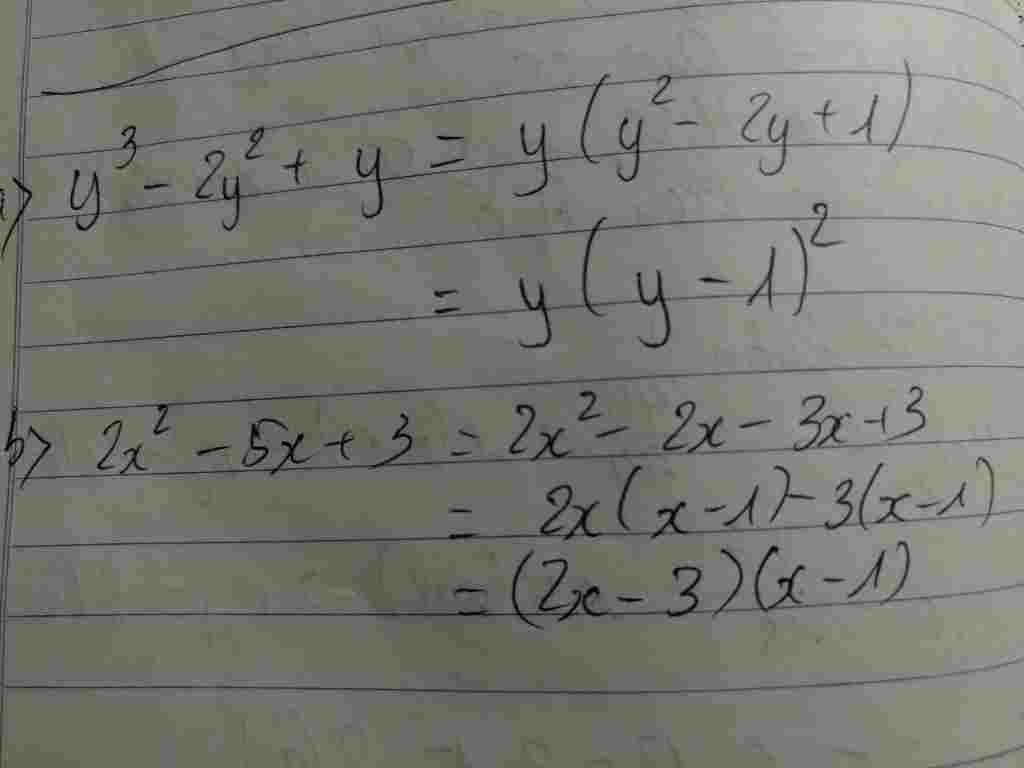 a> y³ - 2y² + y = y(y² - 2y + 1)
= y(y - 1)²
b> 2x² - 5x + 3 = 2x² - 2x - 3x + 3
= 2x(x - 1) - 3(x - 1)
= (2x - 3)(x - 1)